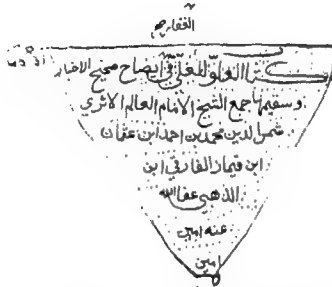 الغفار
كتاب العلو للعلي في ايضاح صحيح الاخبار
وسقيمها جمع الشيخ الامام العالم الاثري
شمس الدين محمد بن احمد ابن عثمان
ابن قيماز الفارقي ابن
الذهبي عفا الله
عنه امين
امين